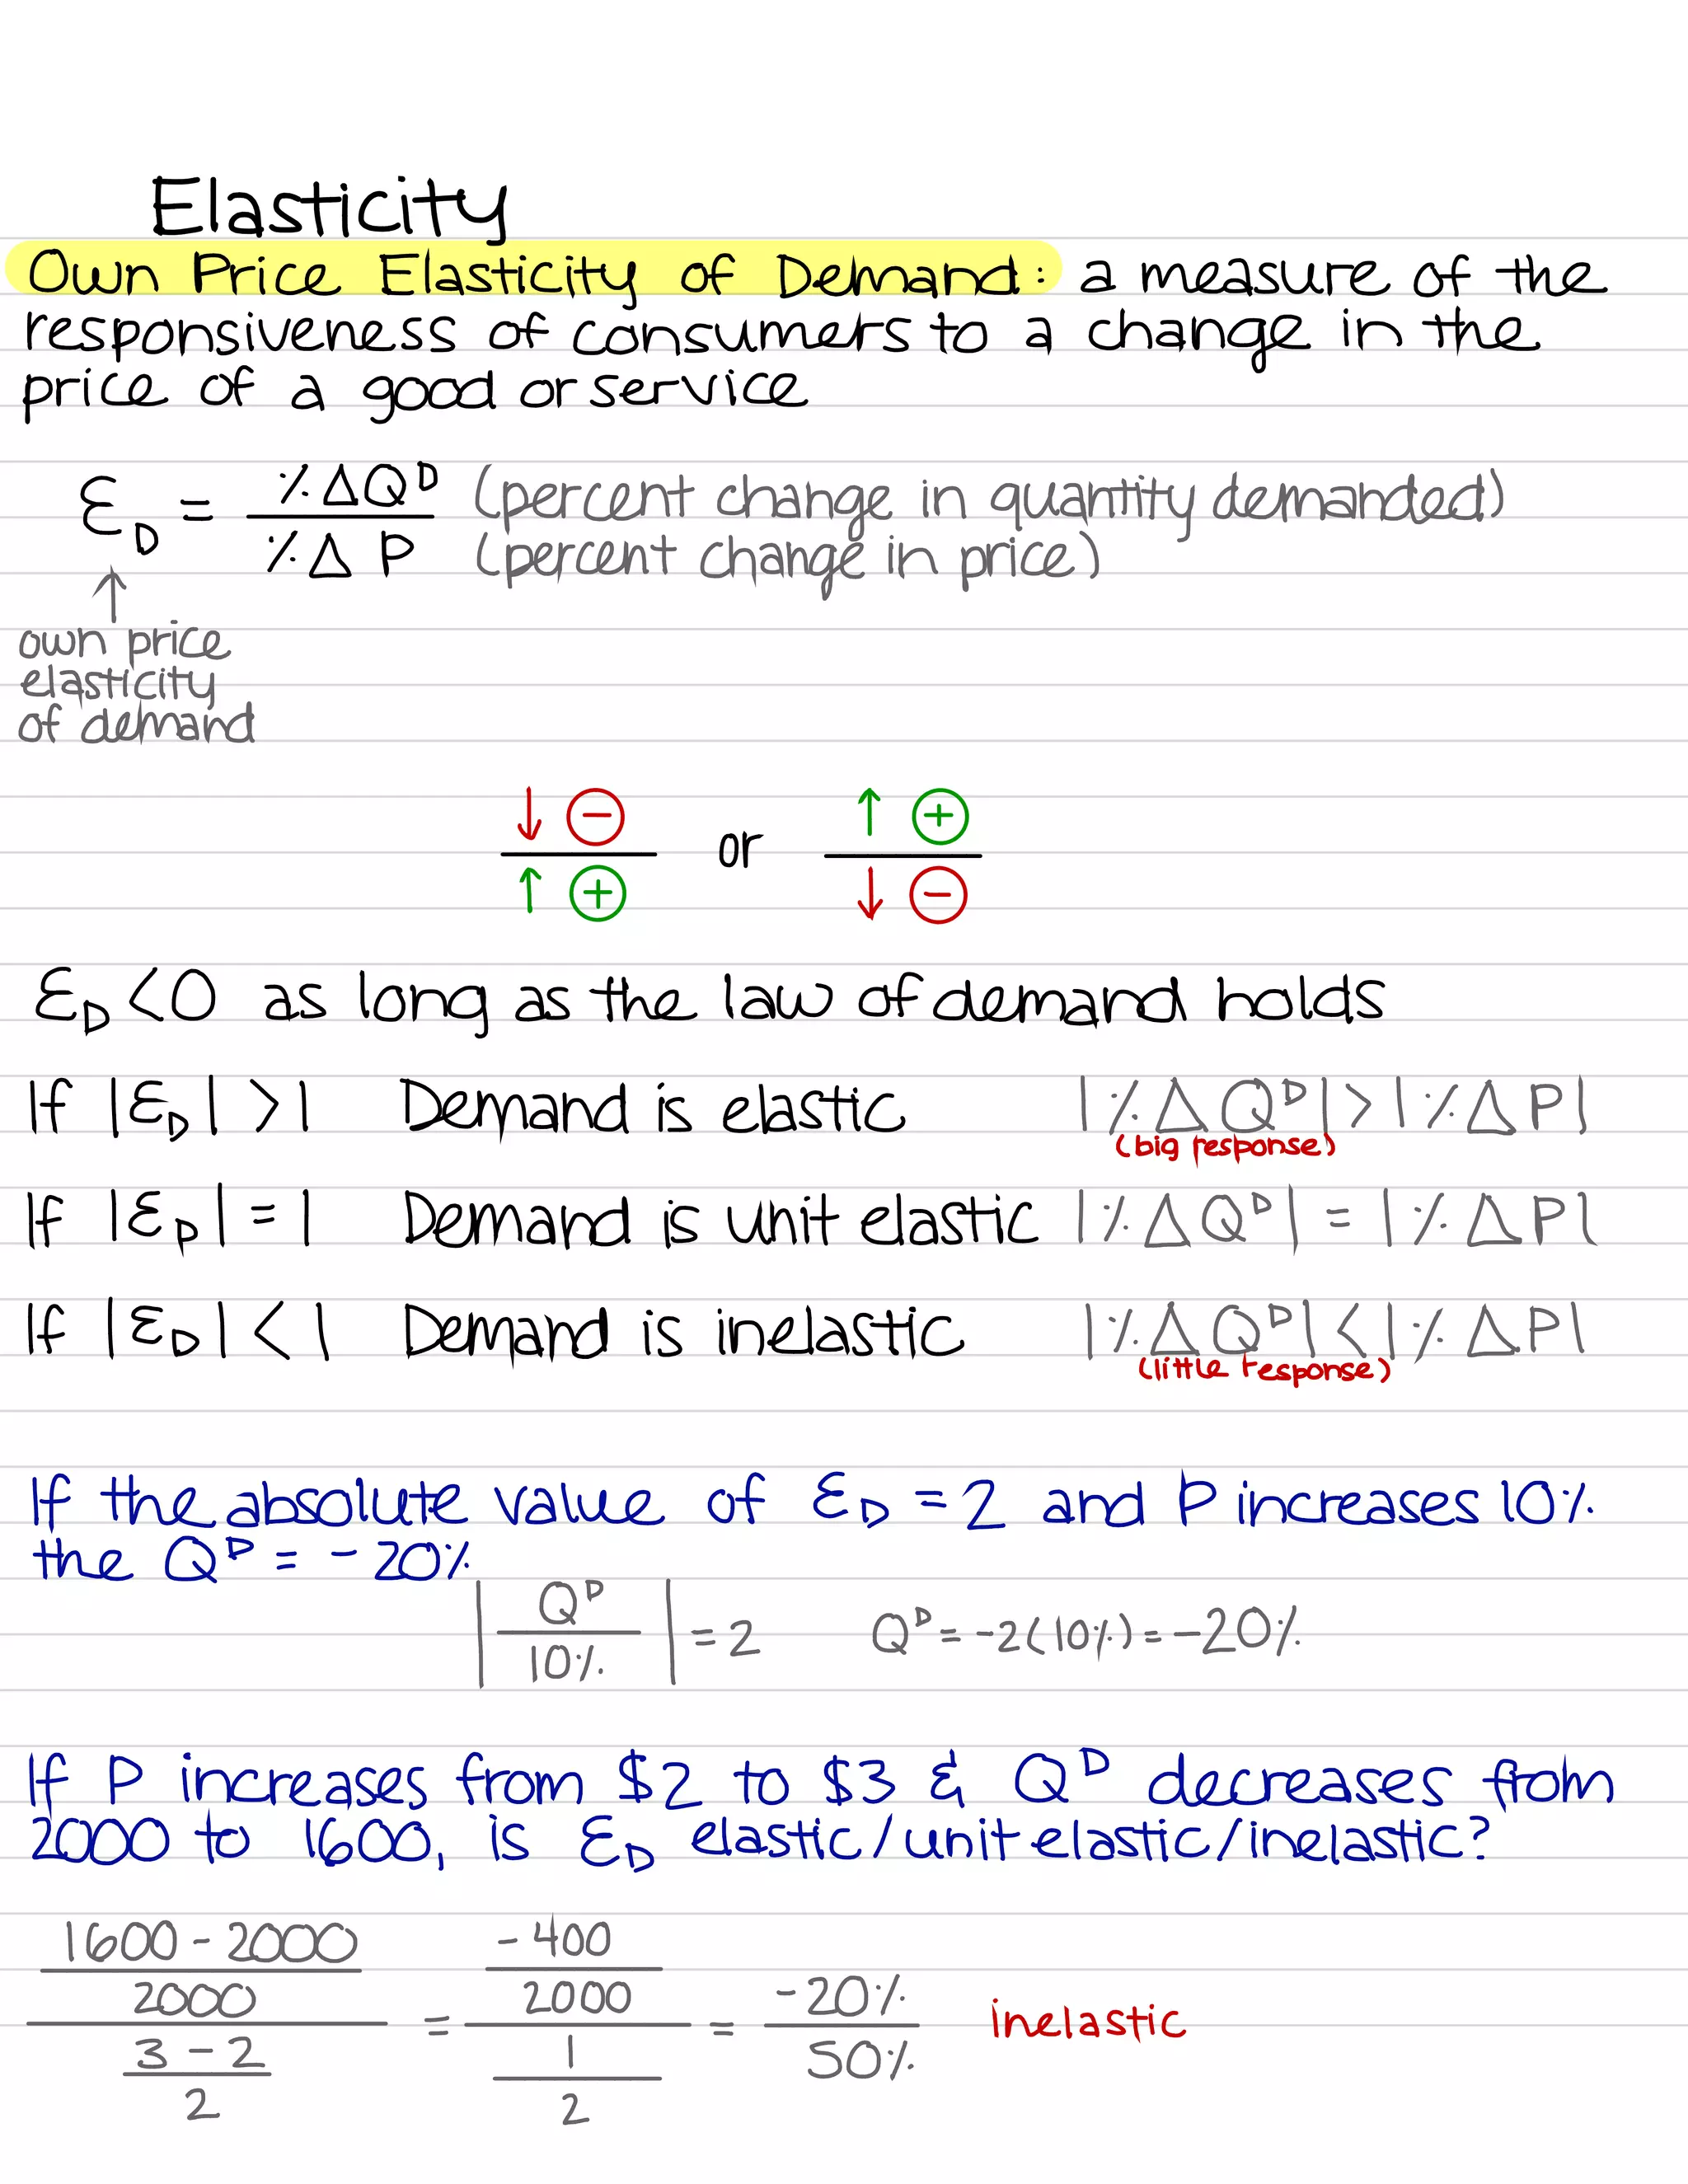 Elasticity
Own Price Elasticity of Demand: a measure of the
responsiveness of consumers to a change in the
price of a good or service
ƐD = %ΔQᴰ / %ΔP (percent change in quantity demanded)
(percent change in price)
↑
own price
elasticity
of demand
↓ ⊖ or ↑ ⊕
↑ ⊕ ↓ ⊖
ƐD < 0 as long as the law of demand holds
If |ƐD| > 1 Demand is elastic |%ΔQᴰ| > |%ΔP|
(big response)
If |ƐD| = 1 Demand is unit elastic |%ΔQᴰ| = |%ΔP|
If |ƐD| < 1 Demand is inelastic |%ΔQᴰ| < |%ΔP|
(little response)
If the absolute value of ƐD = 2 and P increases 10%
the Qᴰ = -20%
|Qᴰ / 10%| = 2 Qᴰ = -2(10%) = -20%
If P increases from $2 to $3 & Qᴰ decreases from
2000 to 1600, is ƐD elastic/unit elastic/inelastic?
1600 - 2000 -400
2000 2000 -20%
= = inelastic
3 - 2 1 50%
2 2